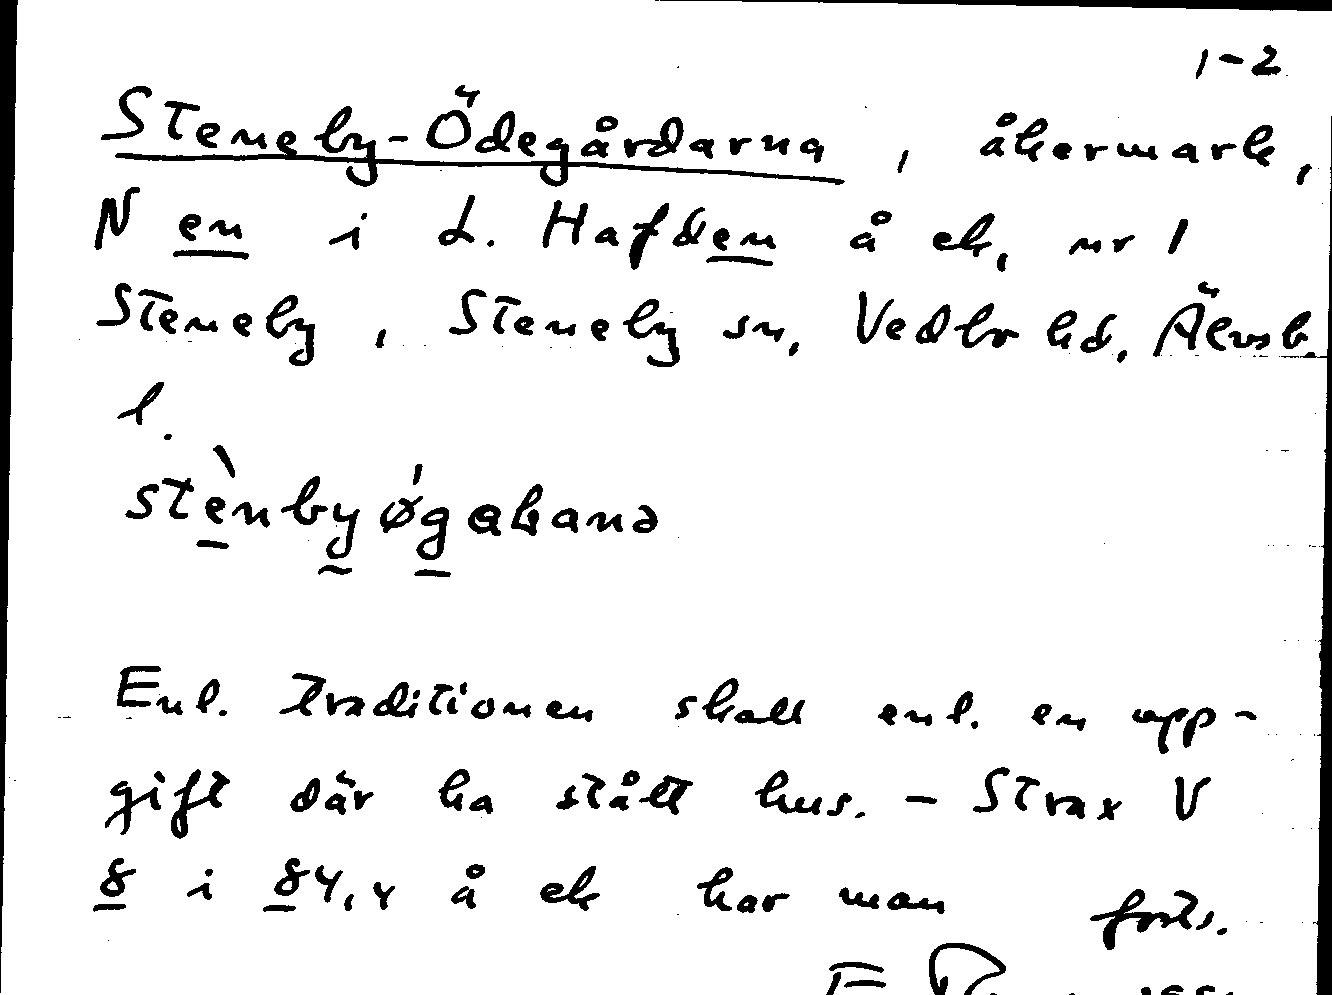 1-2
Steneby-Ödegårdarna, åkermark,
N en i L. Hafden å ek, nr 1
Steneby, Steneby sn, Vedbo hd, Älvsb.
l.
stènbyøǵakanə
Enl. traditionen skall enl. en upp-
gift där ha stått hus. - Strax V
8 i 84,4 å ek har man forts.